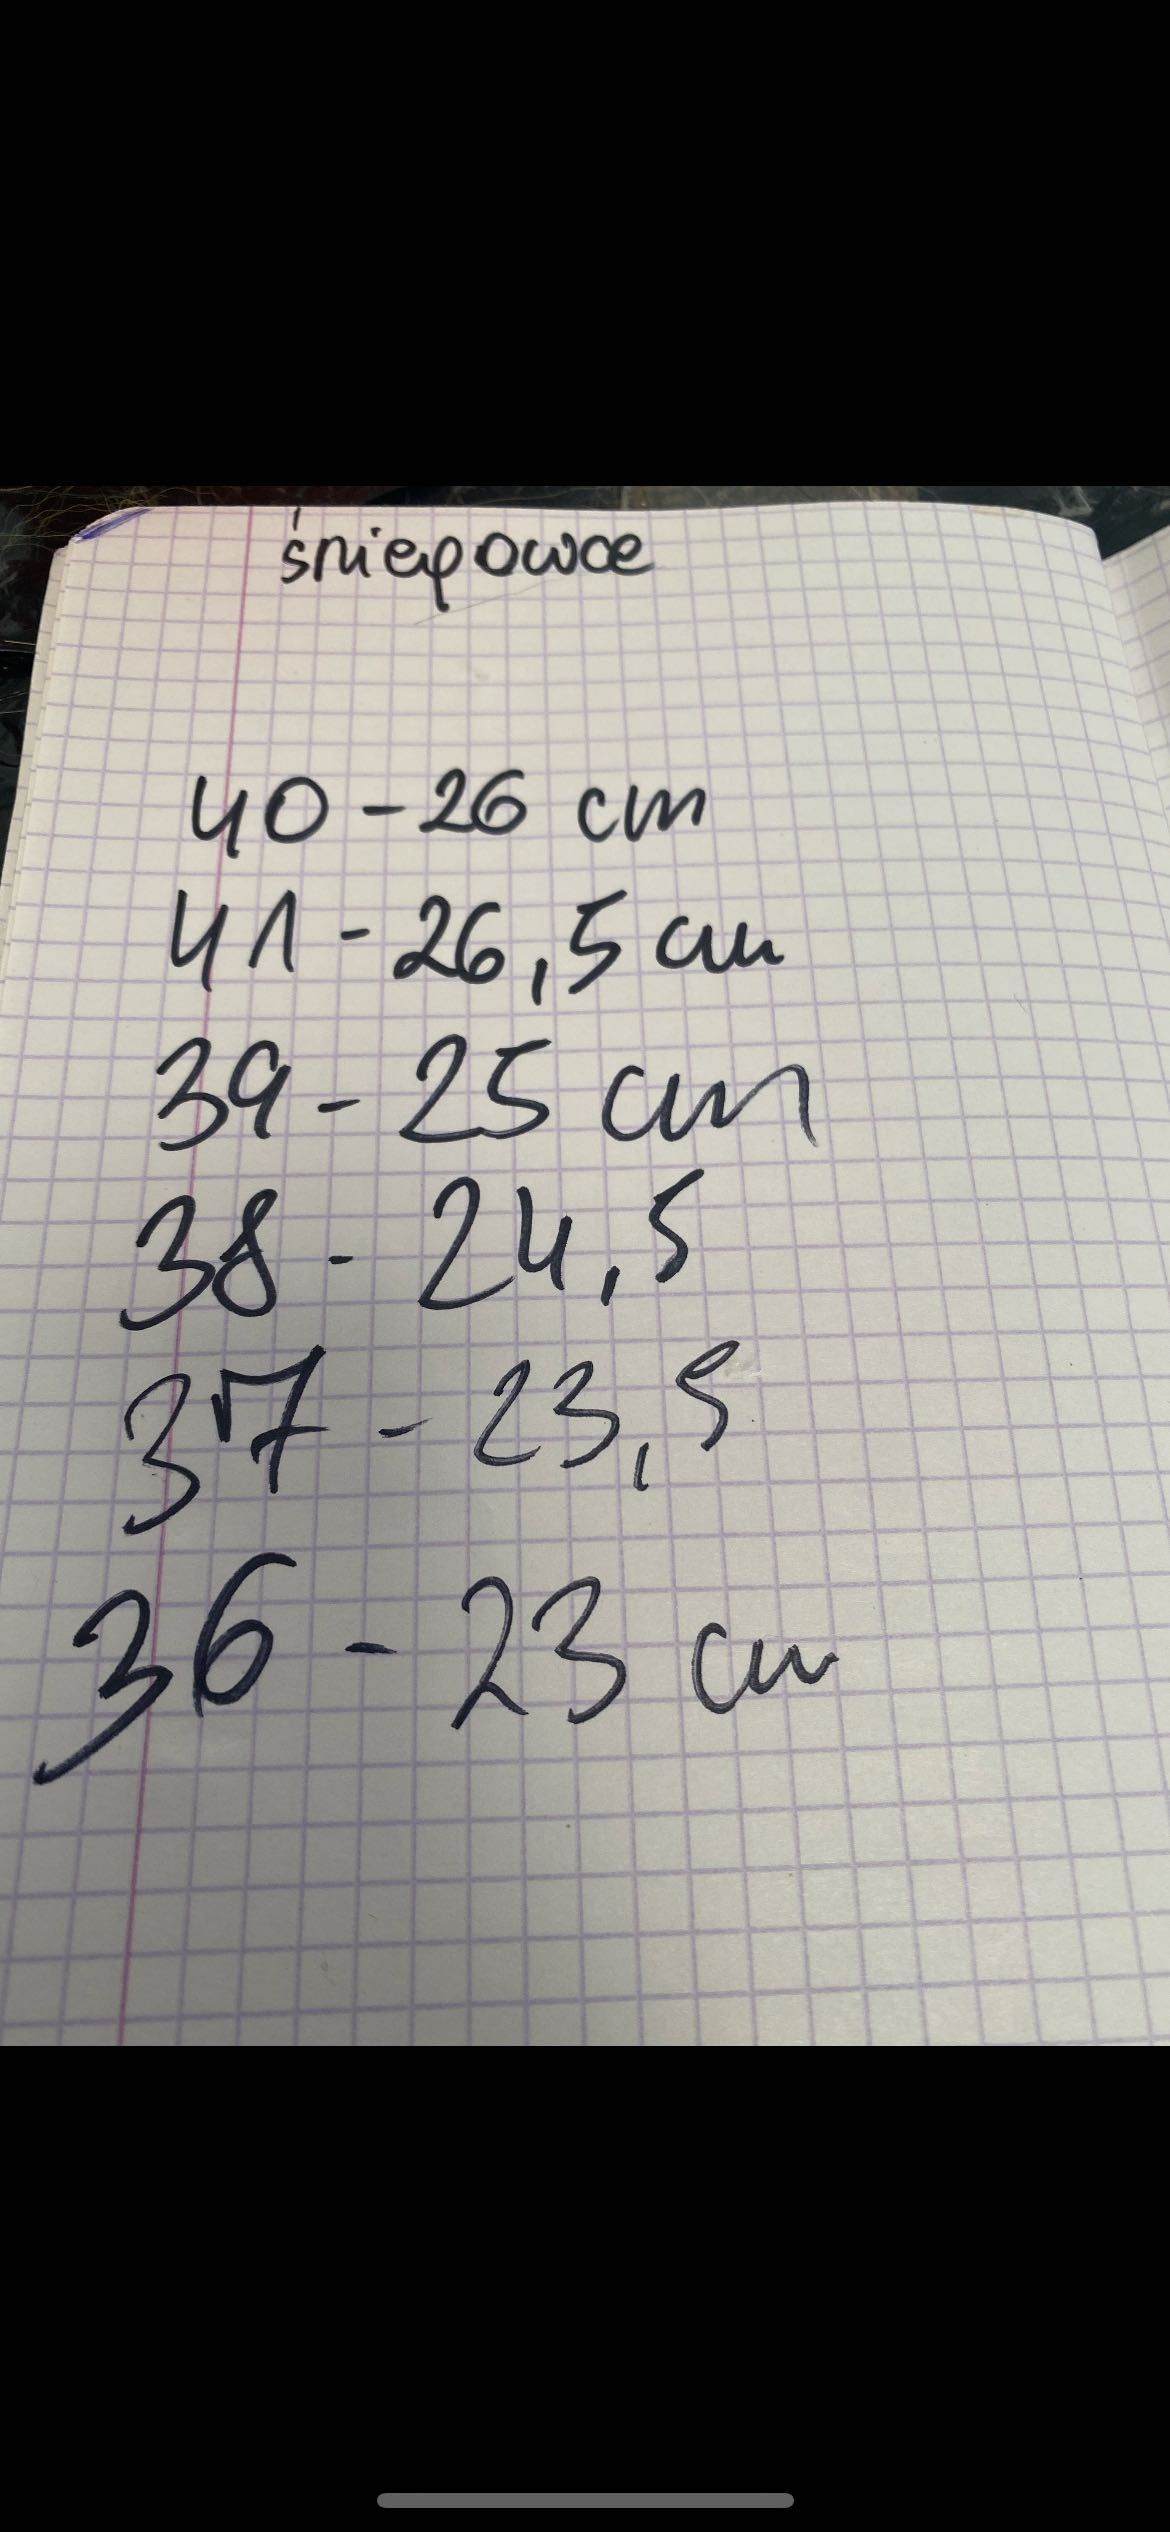 śniegowce
40 - 26 cm
41 - 26,5 cm
39 - 25 cm
38 - 24,5
37 - 23,5
36 - 23 cm